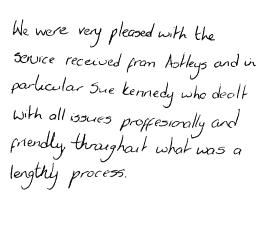 We were very pleased with the
service received from Astleys and in
particular Sue Kennedy who dealt
with all issues proffesionally and
friendly throughout what was a
lengthly process.